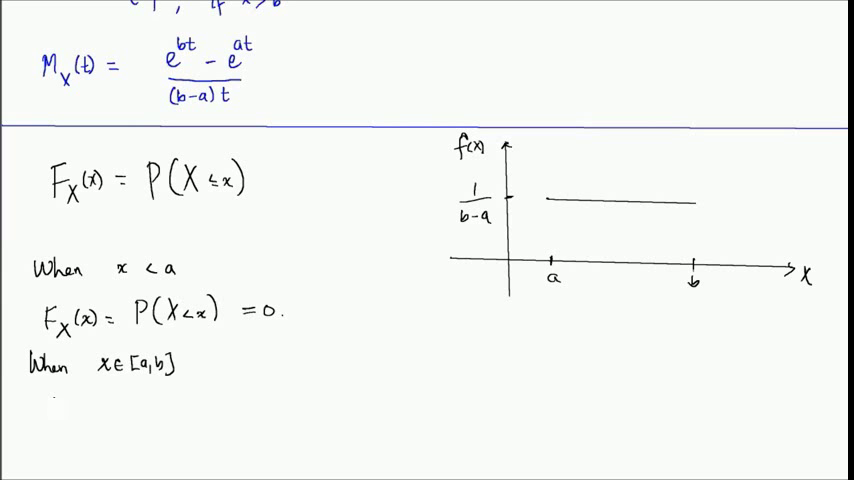 1 , if x > b
M_X(t) = (e^{bt} - e^{at}) / ((b-a) t)
F_X(x) = P(X ≤ x)
When x < a
F_X(x) = P(X < x) = 0.
When x ∈ [a,b]
f(x)
1/(b-a)
a
b
X